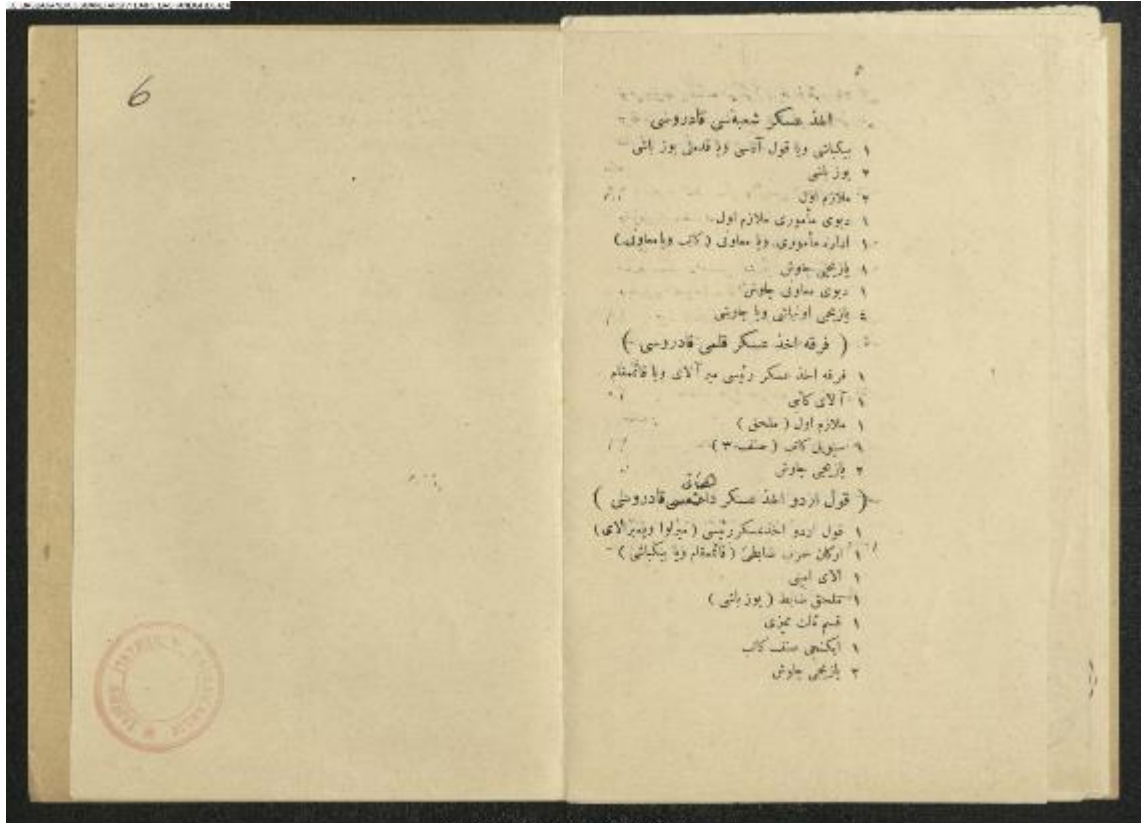 6
٥
اخذ عسكر شعبه‌سی قادروسی
١ بيكباشی ویا قول آغاسی ویا قدملی یوز باشی
٢ یوز باشی
٢ ملازم اول
١ دپوی مأموری ملازم اول
١ اداره مأموری ویا معاونی ( كاتب ویا معاونی )
١ یازیجی چاوش
١ دپوی معاونی چاوش
٤ یازیجی اونباشی ویا چاوشی
( فرقه اخذ عسكر قلمی قادروسی )
١ فرقه اخذ عسكر رئیسی میر آلای ویا قائممقام
١ آلای كاتبی
١ ملازم اول ( ملحق )
٩ سیویل كاتب ( صنف ٣ )
٢ یازیجی چاوش
( قول اردو اخذ عسكر قادروسی )
١ قول اردو اخذعسكر رئیسی ( میرلوا ویامیرالای )
١ اركان حرب ضابطی ( قائممقام ویا بیكباشی )
١ الای امینی
١ ملحق ضابط ( یوز باشی )
١ قسم ثالث ممیزی
١ ایكنجی صنف كاتب
٢ یازیجی چاوش